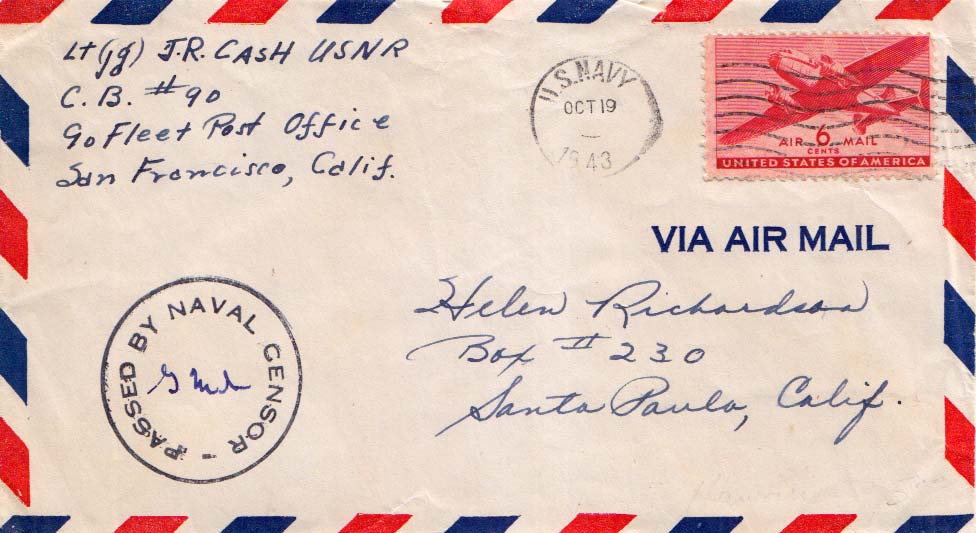 Lt (jg) J.R. CASH USNR
C. B. #90
℅ Fleet Post Office
San Francisco, Calif.
U.S. NAVY
OCT 19
1943
AIR 6 MAIL
CENTS
UNITED STATES OF AMERICA
VIA AIR MAIL
Helen Richardson
Box # 230
Santa Paula, Calif.
PASSED BY NAVAL CENSOR